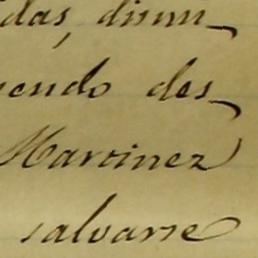 das, dismi-
yendo des-
Martinez
salvarse